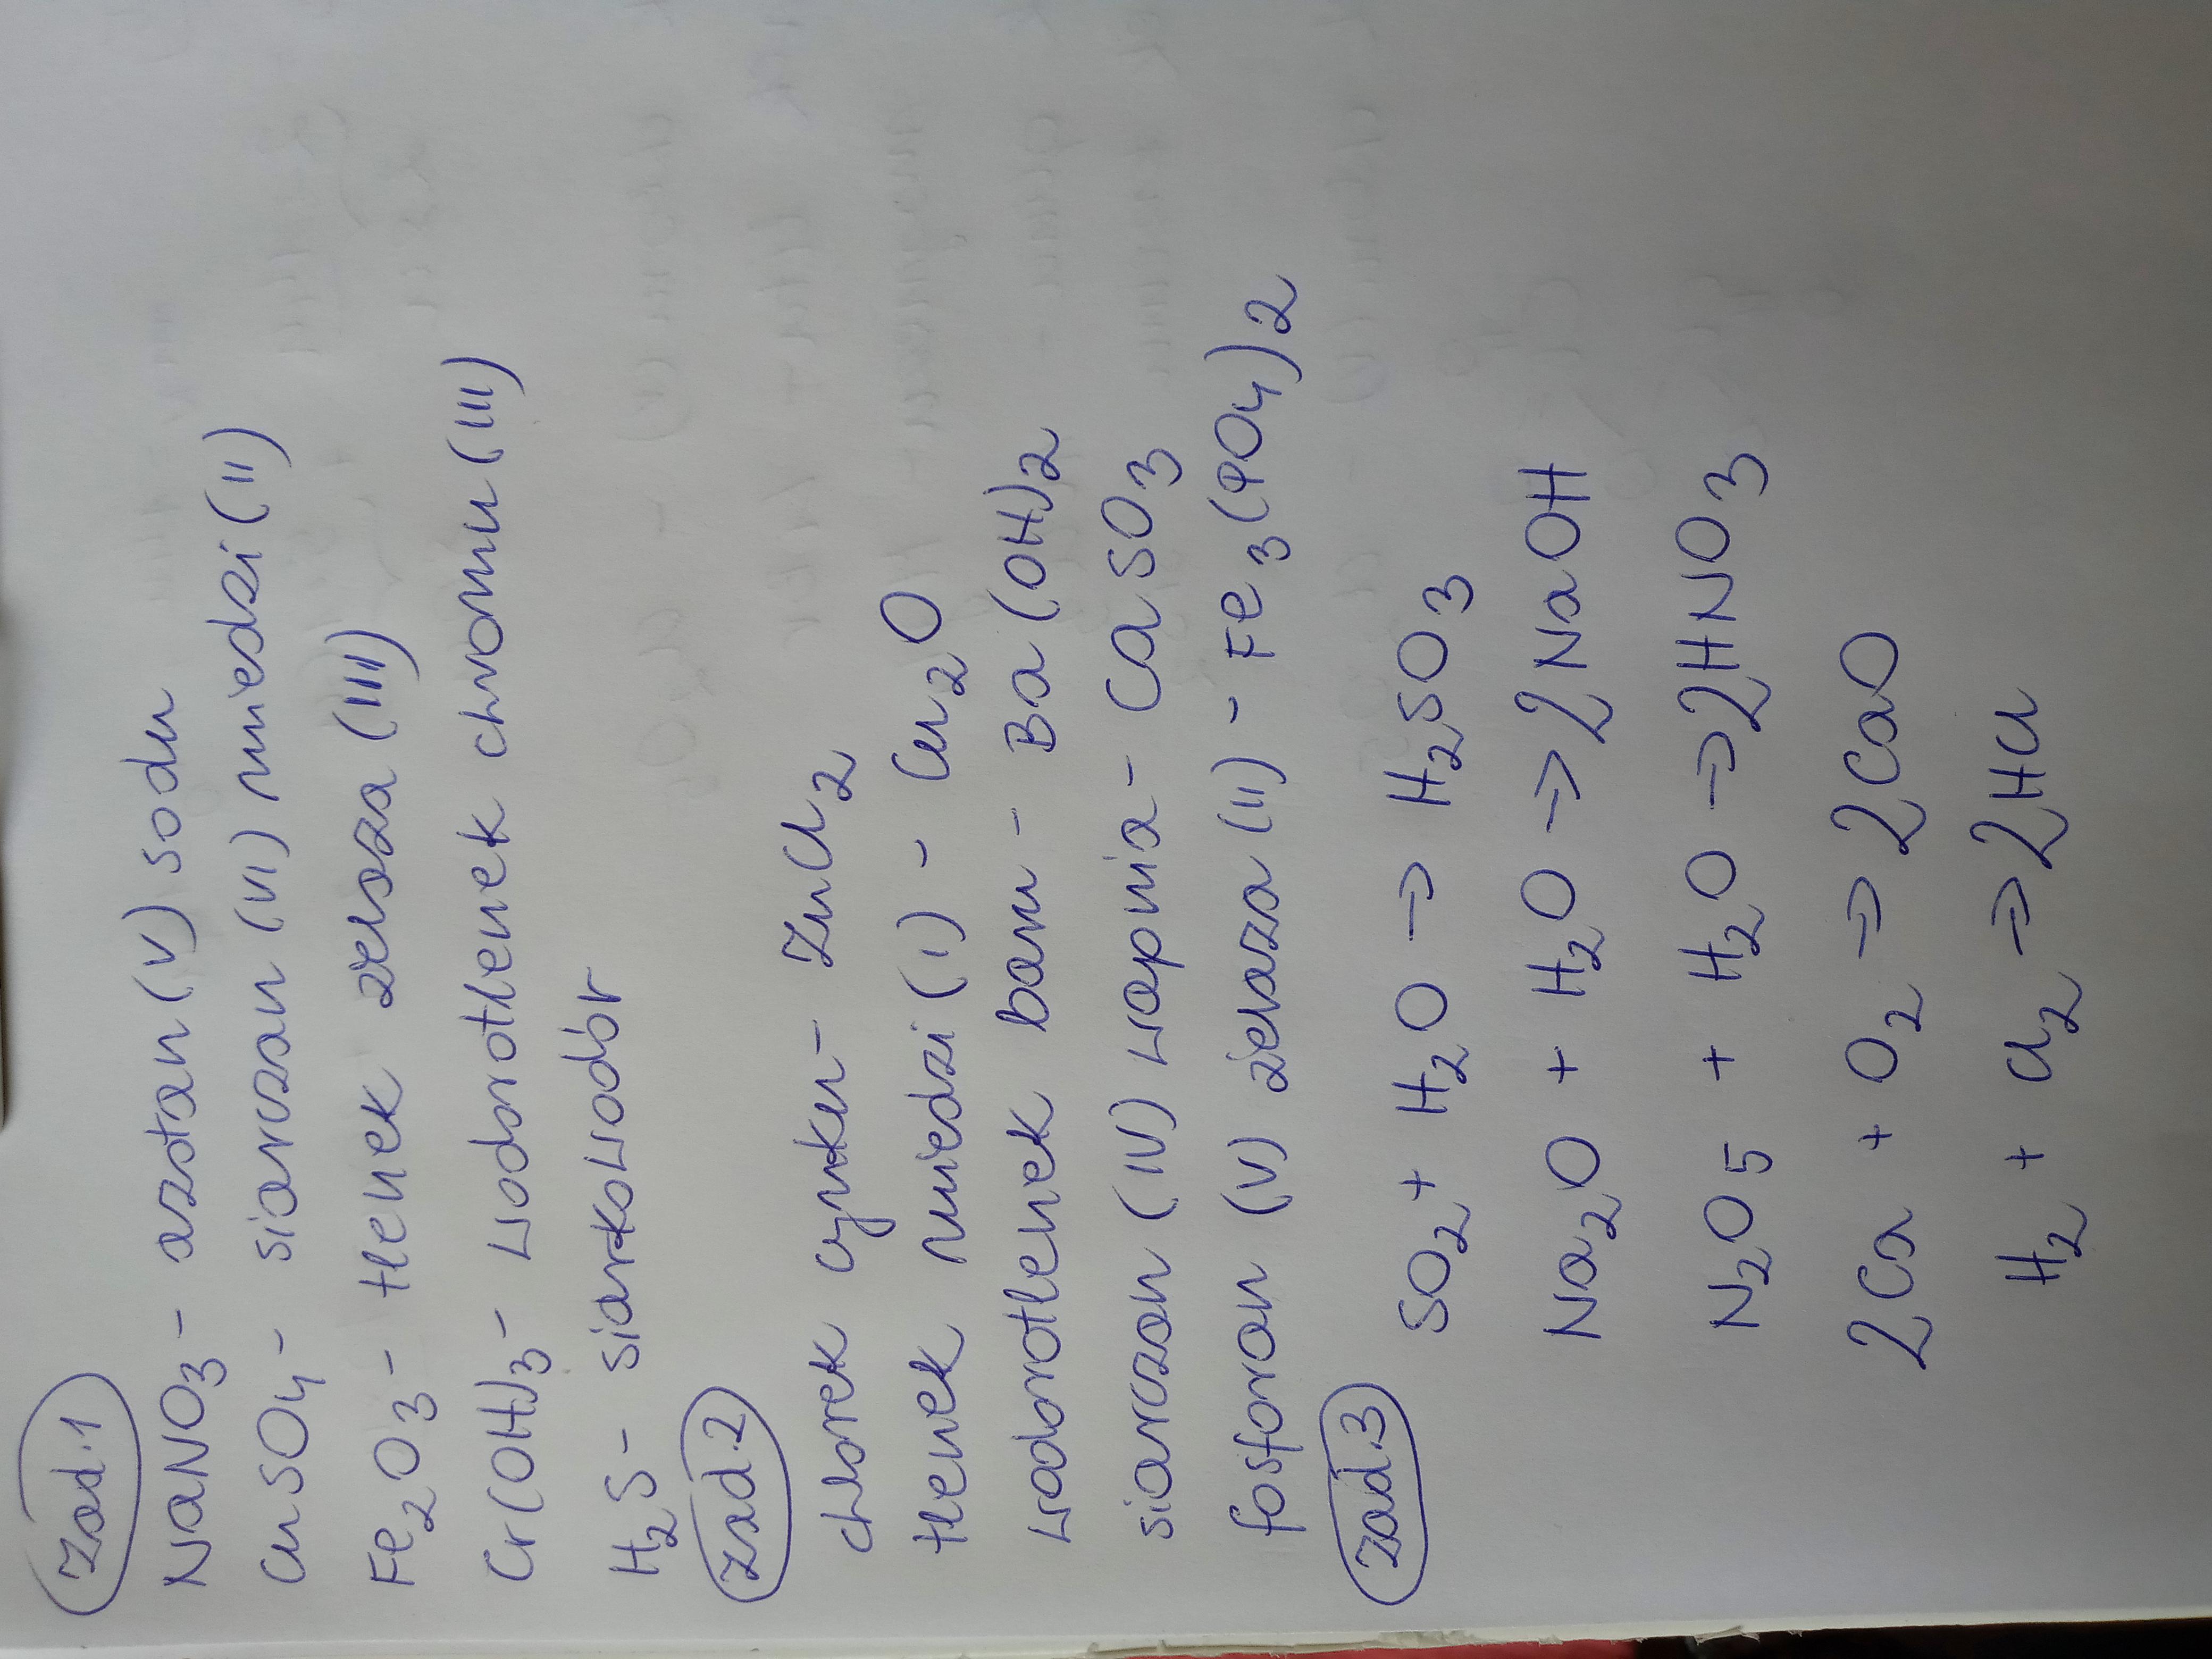 Zad.1
NaNO3 - azotan (V) sodu
CuSO4 - siarczan (VI) miedzi (II)
Fe2O3 - tlenek żelaza (III)
Cr(OH)3 - wodorotlenek chromu (III)
H2S - siarkowodór
Zad.2
chlorek cynku - ZnCl2
tlenek miedzi (I) - Cu2O
wodorotlenek baru - Ba(OH)2
siarczan (IV) wapnia - CaSO3
fosforan (V) żelaza (II) - Fe3(PO4)2
Zad.3
SO2 + H2O → H2SO3
Na2O + H2O → 2NaOH
N2O5 + H2O → 2HNO3
2Ca + O2 → 2CaO
H2 + Cl2 → 2HCl